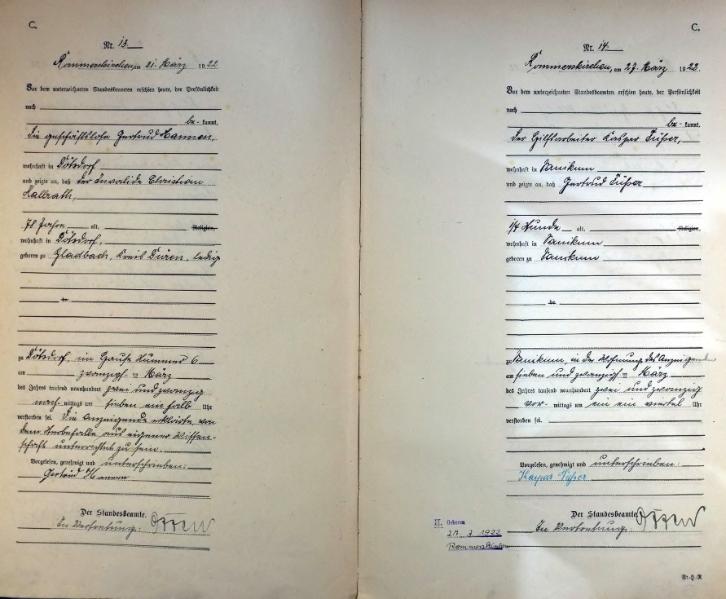 C.
Nr. 13
Rommerskirchen, am 21. März 1922
Vor dem unterzeichneten Standesbeamten erschien heute, der Persönlichkeit
nach
be- kannt,
die geschäftslose Gertrud Hannen,
wohnhaft in Bötzdorf
und zeigte an, daß der Invalide Christian
Kallrath,
71 Jahre alt, Religion,
wohnhaft in
geboren zu Gladbach, Kreis Düren, ledig
zu im Hause Nummer 6
am zwanzigsten März
des Jahres tausend neunhundert zwei und zwanzig
nach mittags um sieben ein halb Uhr
verstorben sei. Die Anzeigende erklärte, von
dem Sterbefalle aus eigener Wissen-
schaft unterrichtet zu sein.
Vorgelesen, genehmigt und unterschrieben:
Gertrud Hannen
Der Standesbeamte.
In Vertretung:
C.
Nr. 14
Rommerskirchen, am 27. März 1922
Vor dem unterzeichneten Standesbeamten erschien heute, der Persönlichkeit
nach
be- kannt,
der Hilfsarbeiter Kaspar
wohnhaft in Vanikum
und zeigte an, daß Gertrud
1/4 Stunde alt, Religion,
wohnhaft in Vanikum
geboren zu Vanikum
zu Vanikum, in der Wohnung des Anzeigenden
am sieben und zwanzigsten März
des Jahres tausend neunhundert zwei und zwanzig
vor- mittags um ein ein viertel Uhr
verstorben sei.
Vorgelesen, genehmigt und unterschrieben:
Der Standesbeamte.
In Vertretung:
II. Geboren
27. 3. 1922